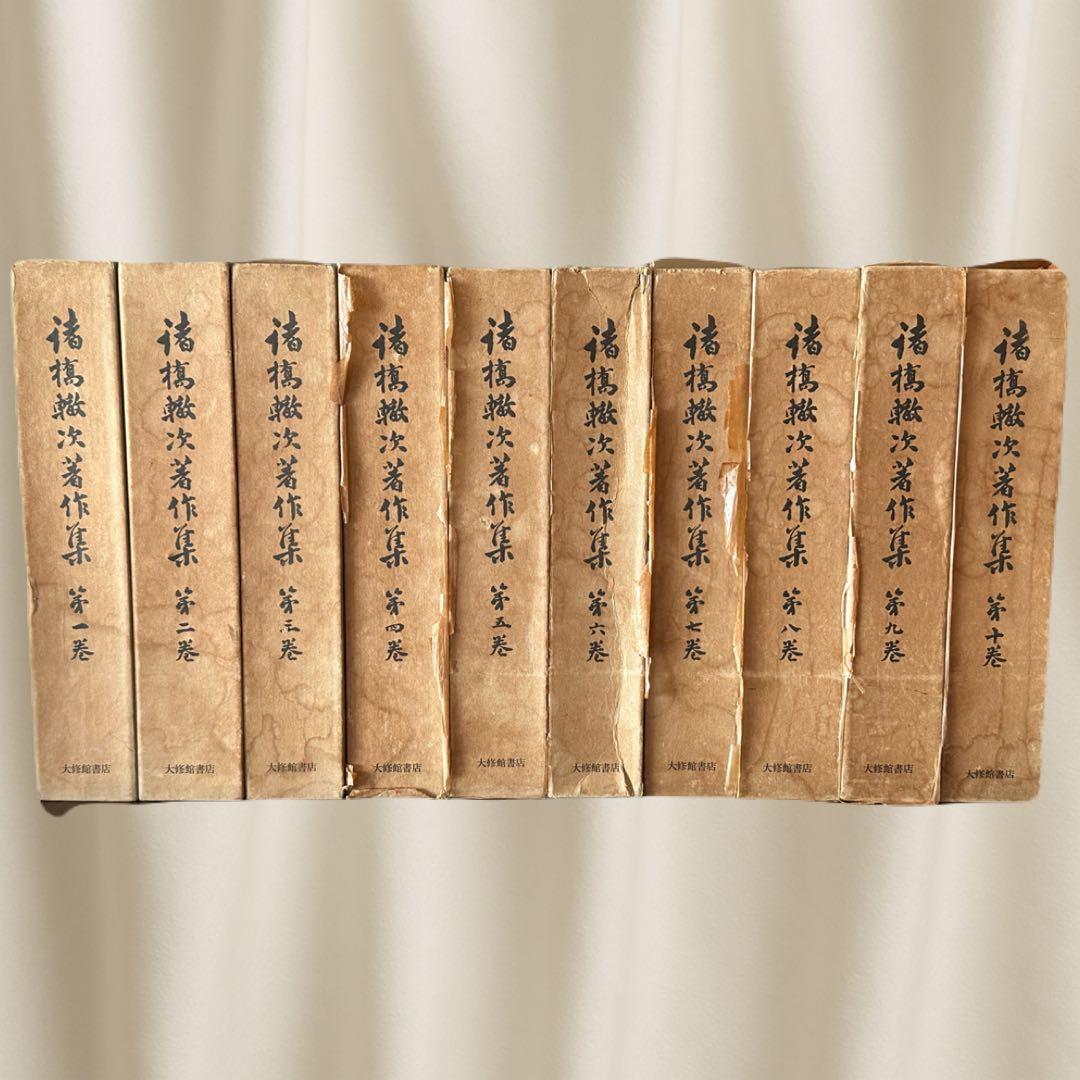 諸橋轍次著作集 第一巻
大修館書店
諸橋轍次著作集 第二巻
大修館書店
諸橋轍次著作集 第三巻
大修館書店
諸橋轍次著作集 第四巻
大修館書店
諸橋轍次著作集 第五巻
大修館書店
諸橋轍次著作集 第六巻
大修館書店
諸橋轍次著作集 第七巻
大修館書店
諸橋轍次著作集 第八巻
大修館書店
諸橋轍次著作集 第九巻
大修館書店
諸橋轍次著作集 第十巻
大修館書店